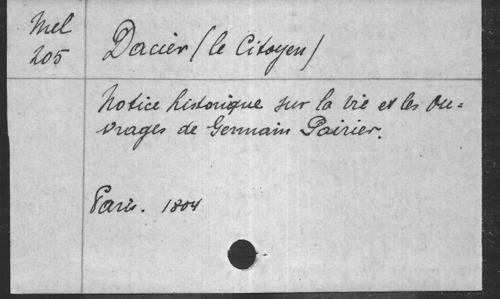 Mel
205
Dacier (le Citoyen)
Notice historique sur la vie et les Ou-
vrages de Germain Poirier.
Paris. 1804